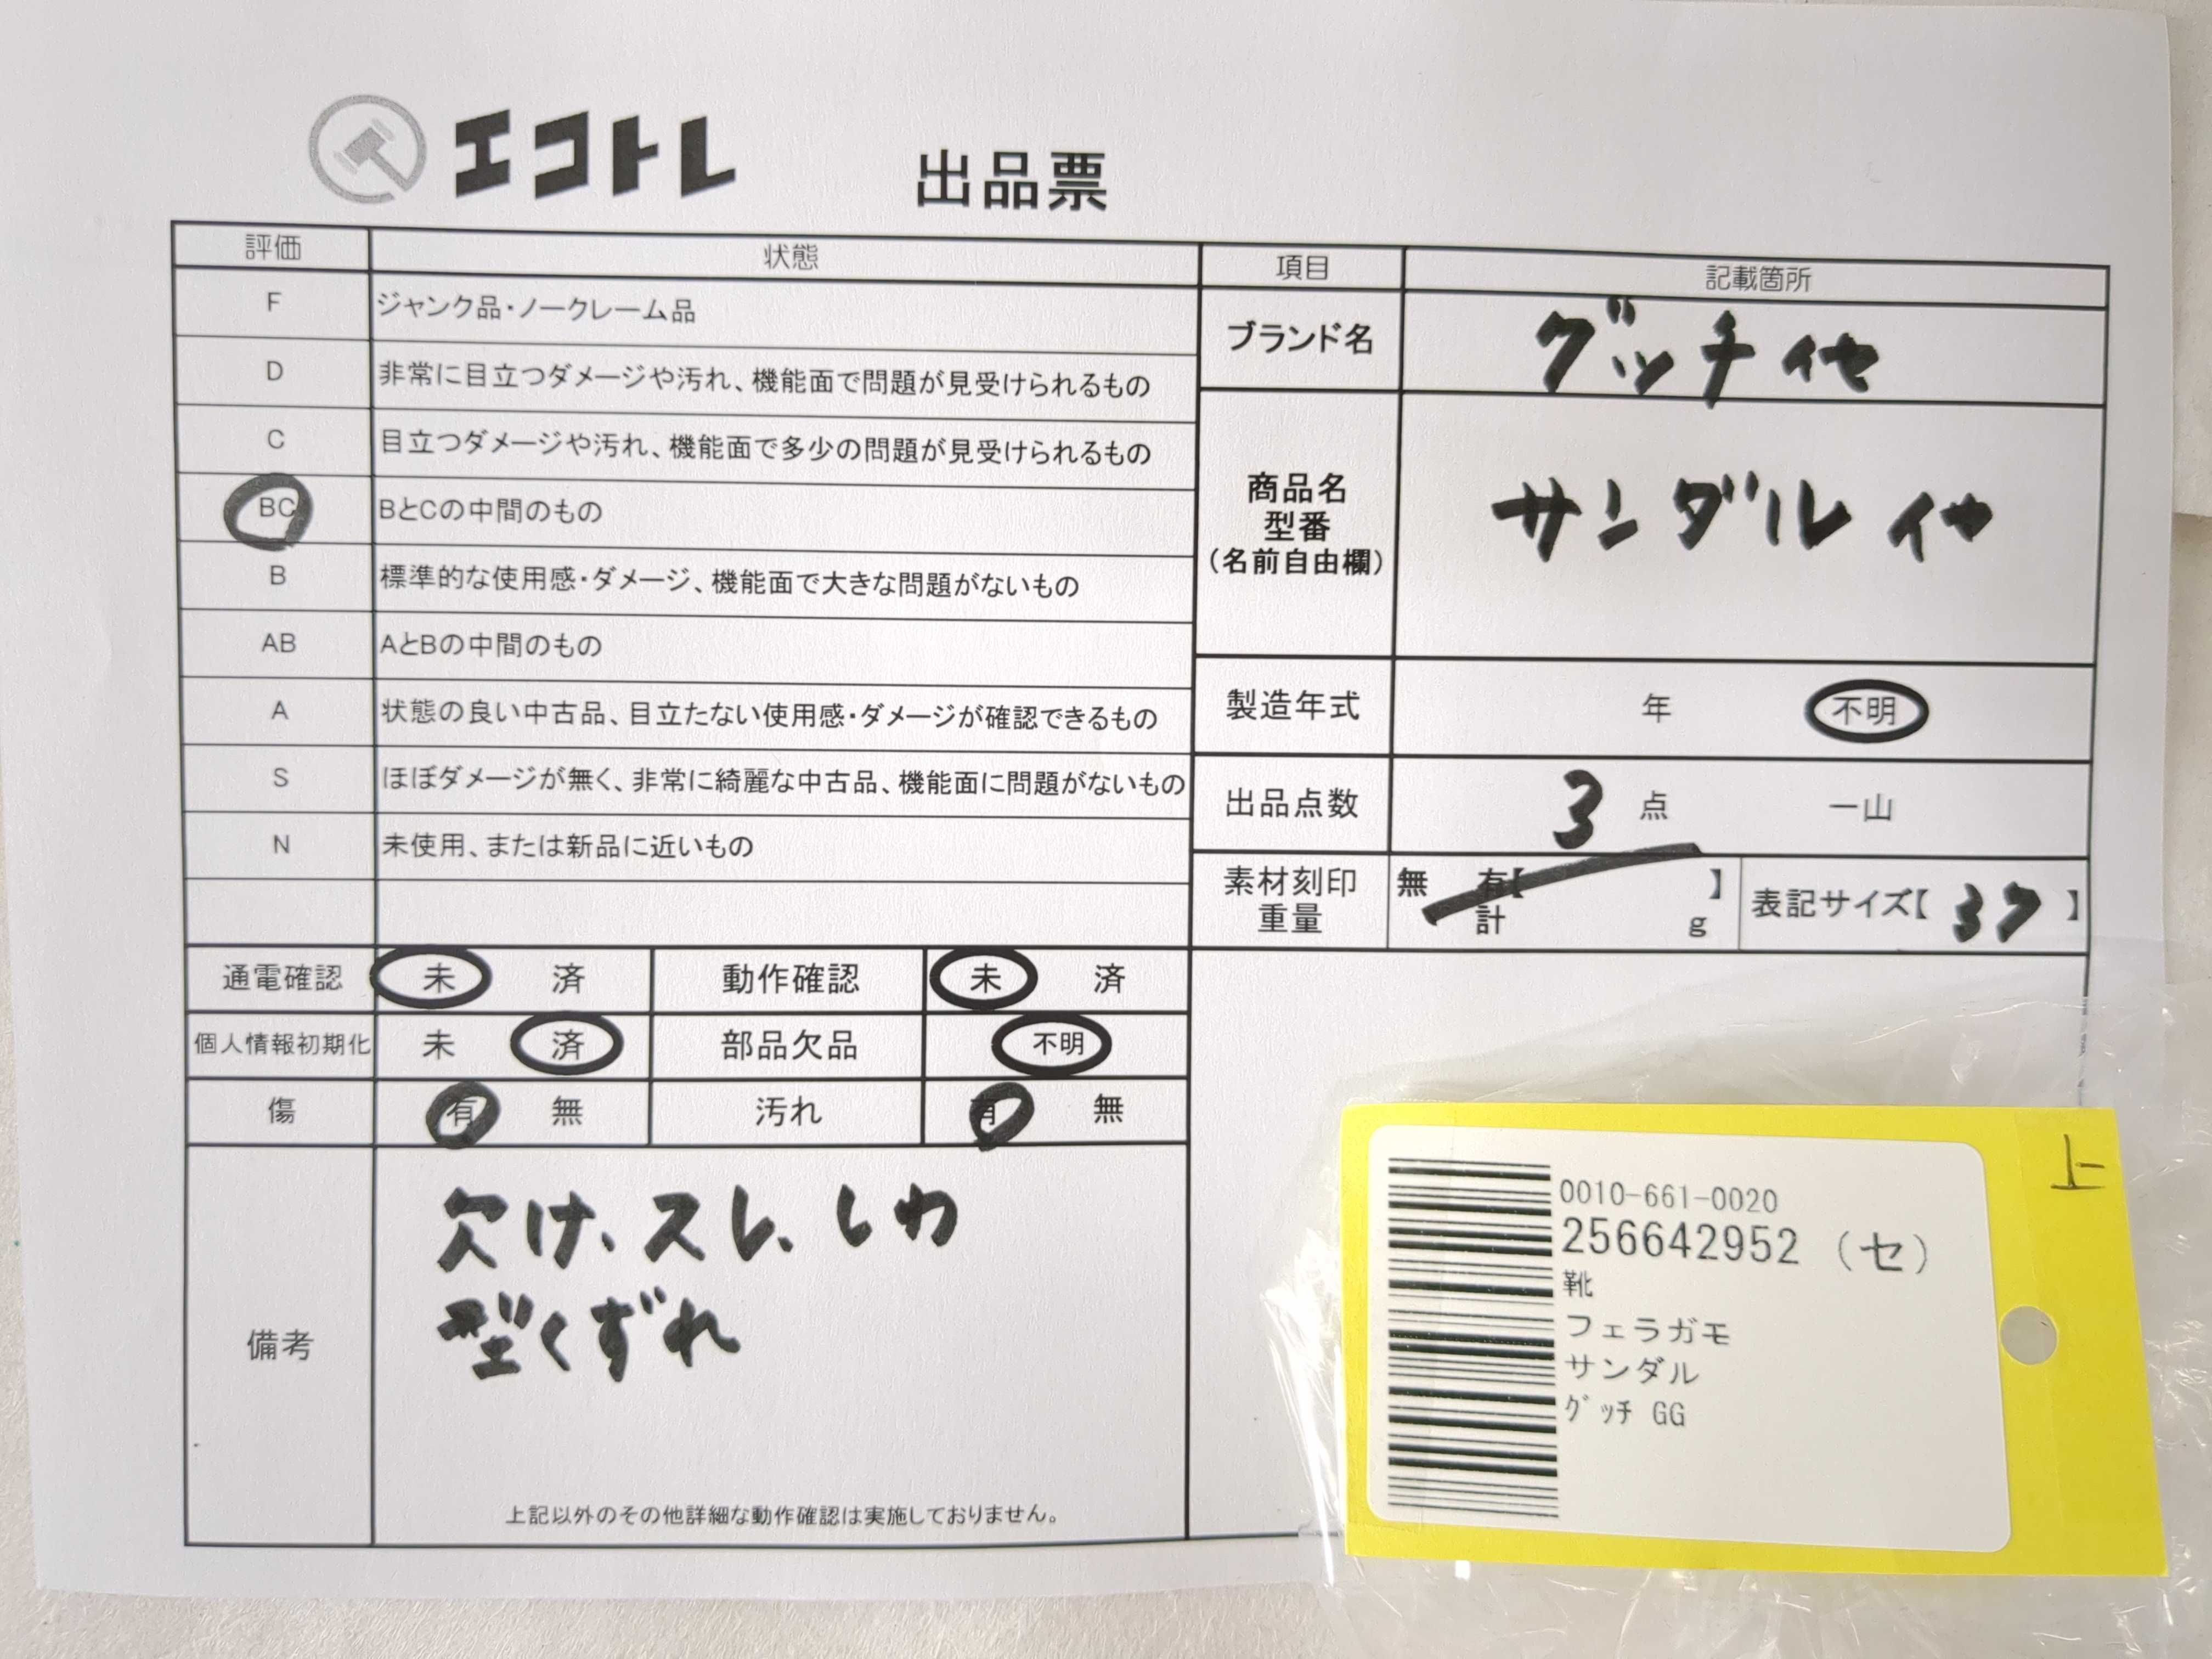 エコトレ 出品票
評価 状態
F ジャンク品・ノークレーム品
D 非常に目立つダメージや汚れ、機能面で問題が見受けられるもの
C 目立つダメージや汚れ、機能面で多少の問題が見受けられるもの
BC BとCの中間のもの
B 標準的な使用感・ダメージ、機能面で大きな問題がないもの
AB AとBの中間のもの
A 状態の良い中古品、目立たない使用感・ダメージが確認できるもの
S ほぼダメージが無く、非常に綺麗な中古品、機能面に問題がないもの
N 未使用、または新品に近いもの
項目 記載箇所
ブランド名 グッチ 他
商品名
型番
(名前自由欄)
サンダル 他
製造年式 年 不明
出品点数 3 点 一山
素材刻印
重量
無 有【 】
計 g
表記サイズ【 37 】
通電確認 未 済 動作確認 未 済
個人情報初期化 未 済 部品欠品 不明
傷 有 無 汚れ 有 無
備考
欠け、スレ、しわ
型くずれ
上記以外のその他詳細な動作確認は実施しておりません。
上
0010-661-0020
256642952 (セ)
靴
フェラガモ
サンダル
ｸﾞｯﾁ GG